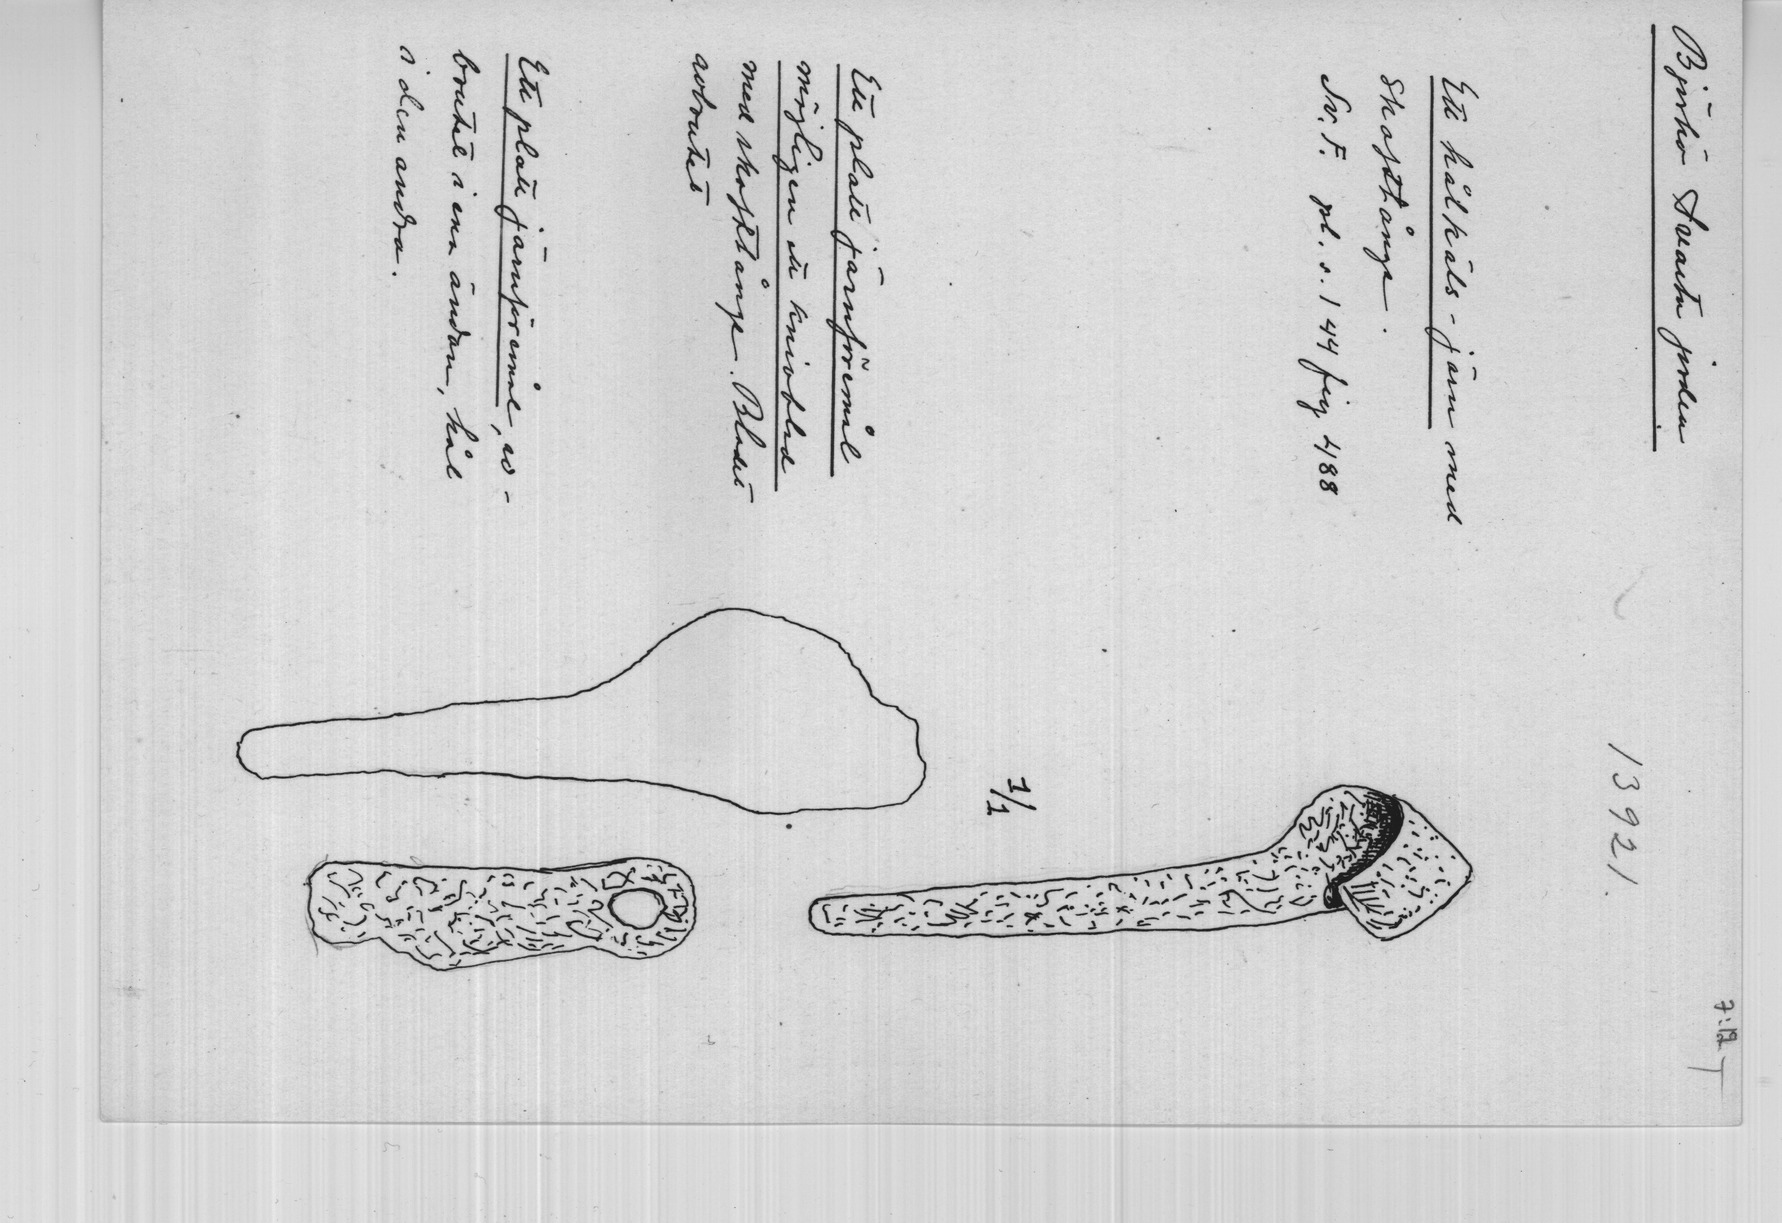 Björkö Svarta jorden
13921.
7:12
Ett hålkäls-järn med
skafttånge.
Sv. F. pl. s. 144 fig 488
1/1
Ett platt järnföremål
möjligen ett knivblad
med skafttånge. Bladet
avbrutet
Ett platt järnföremål, av-
brutet i ena ändan, hål
i den andra.